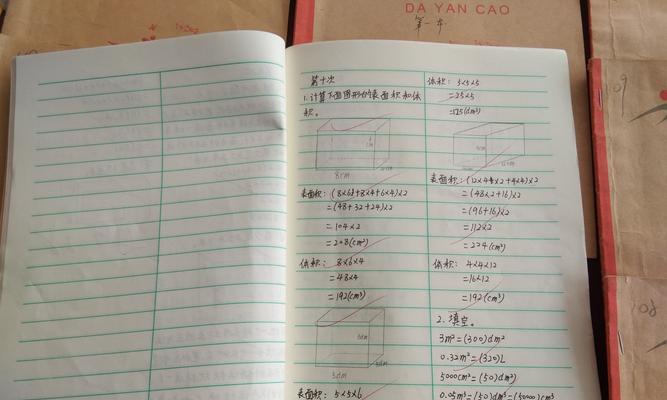 DA YAN CAO
第一本
第十次
1.计算下面图形的表面积和体
积。
8cm
表面积:(8×6+8×4+6×4)×2
=(48+32+24)×2
=104×2
=208(cm²)
体积: 8×6×4
=48×4
=192(cm³)
5dm
表面积: 5×5×6
体积: 5×5×5
=25×5
=125(dm³)
表面积:(12×4×2+4×4)×2
=(48×2+16)×2
=(96+16)×2
=112×2
=224(cm²)
体积: 4×4×12
=16×12
=192(cm³)
2. 填空。
3m²=(300)dm²
0.32m³=(320)L
5000cm²=(50)dm²
0.05m³=(50)dm³=(50000)cm³